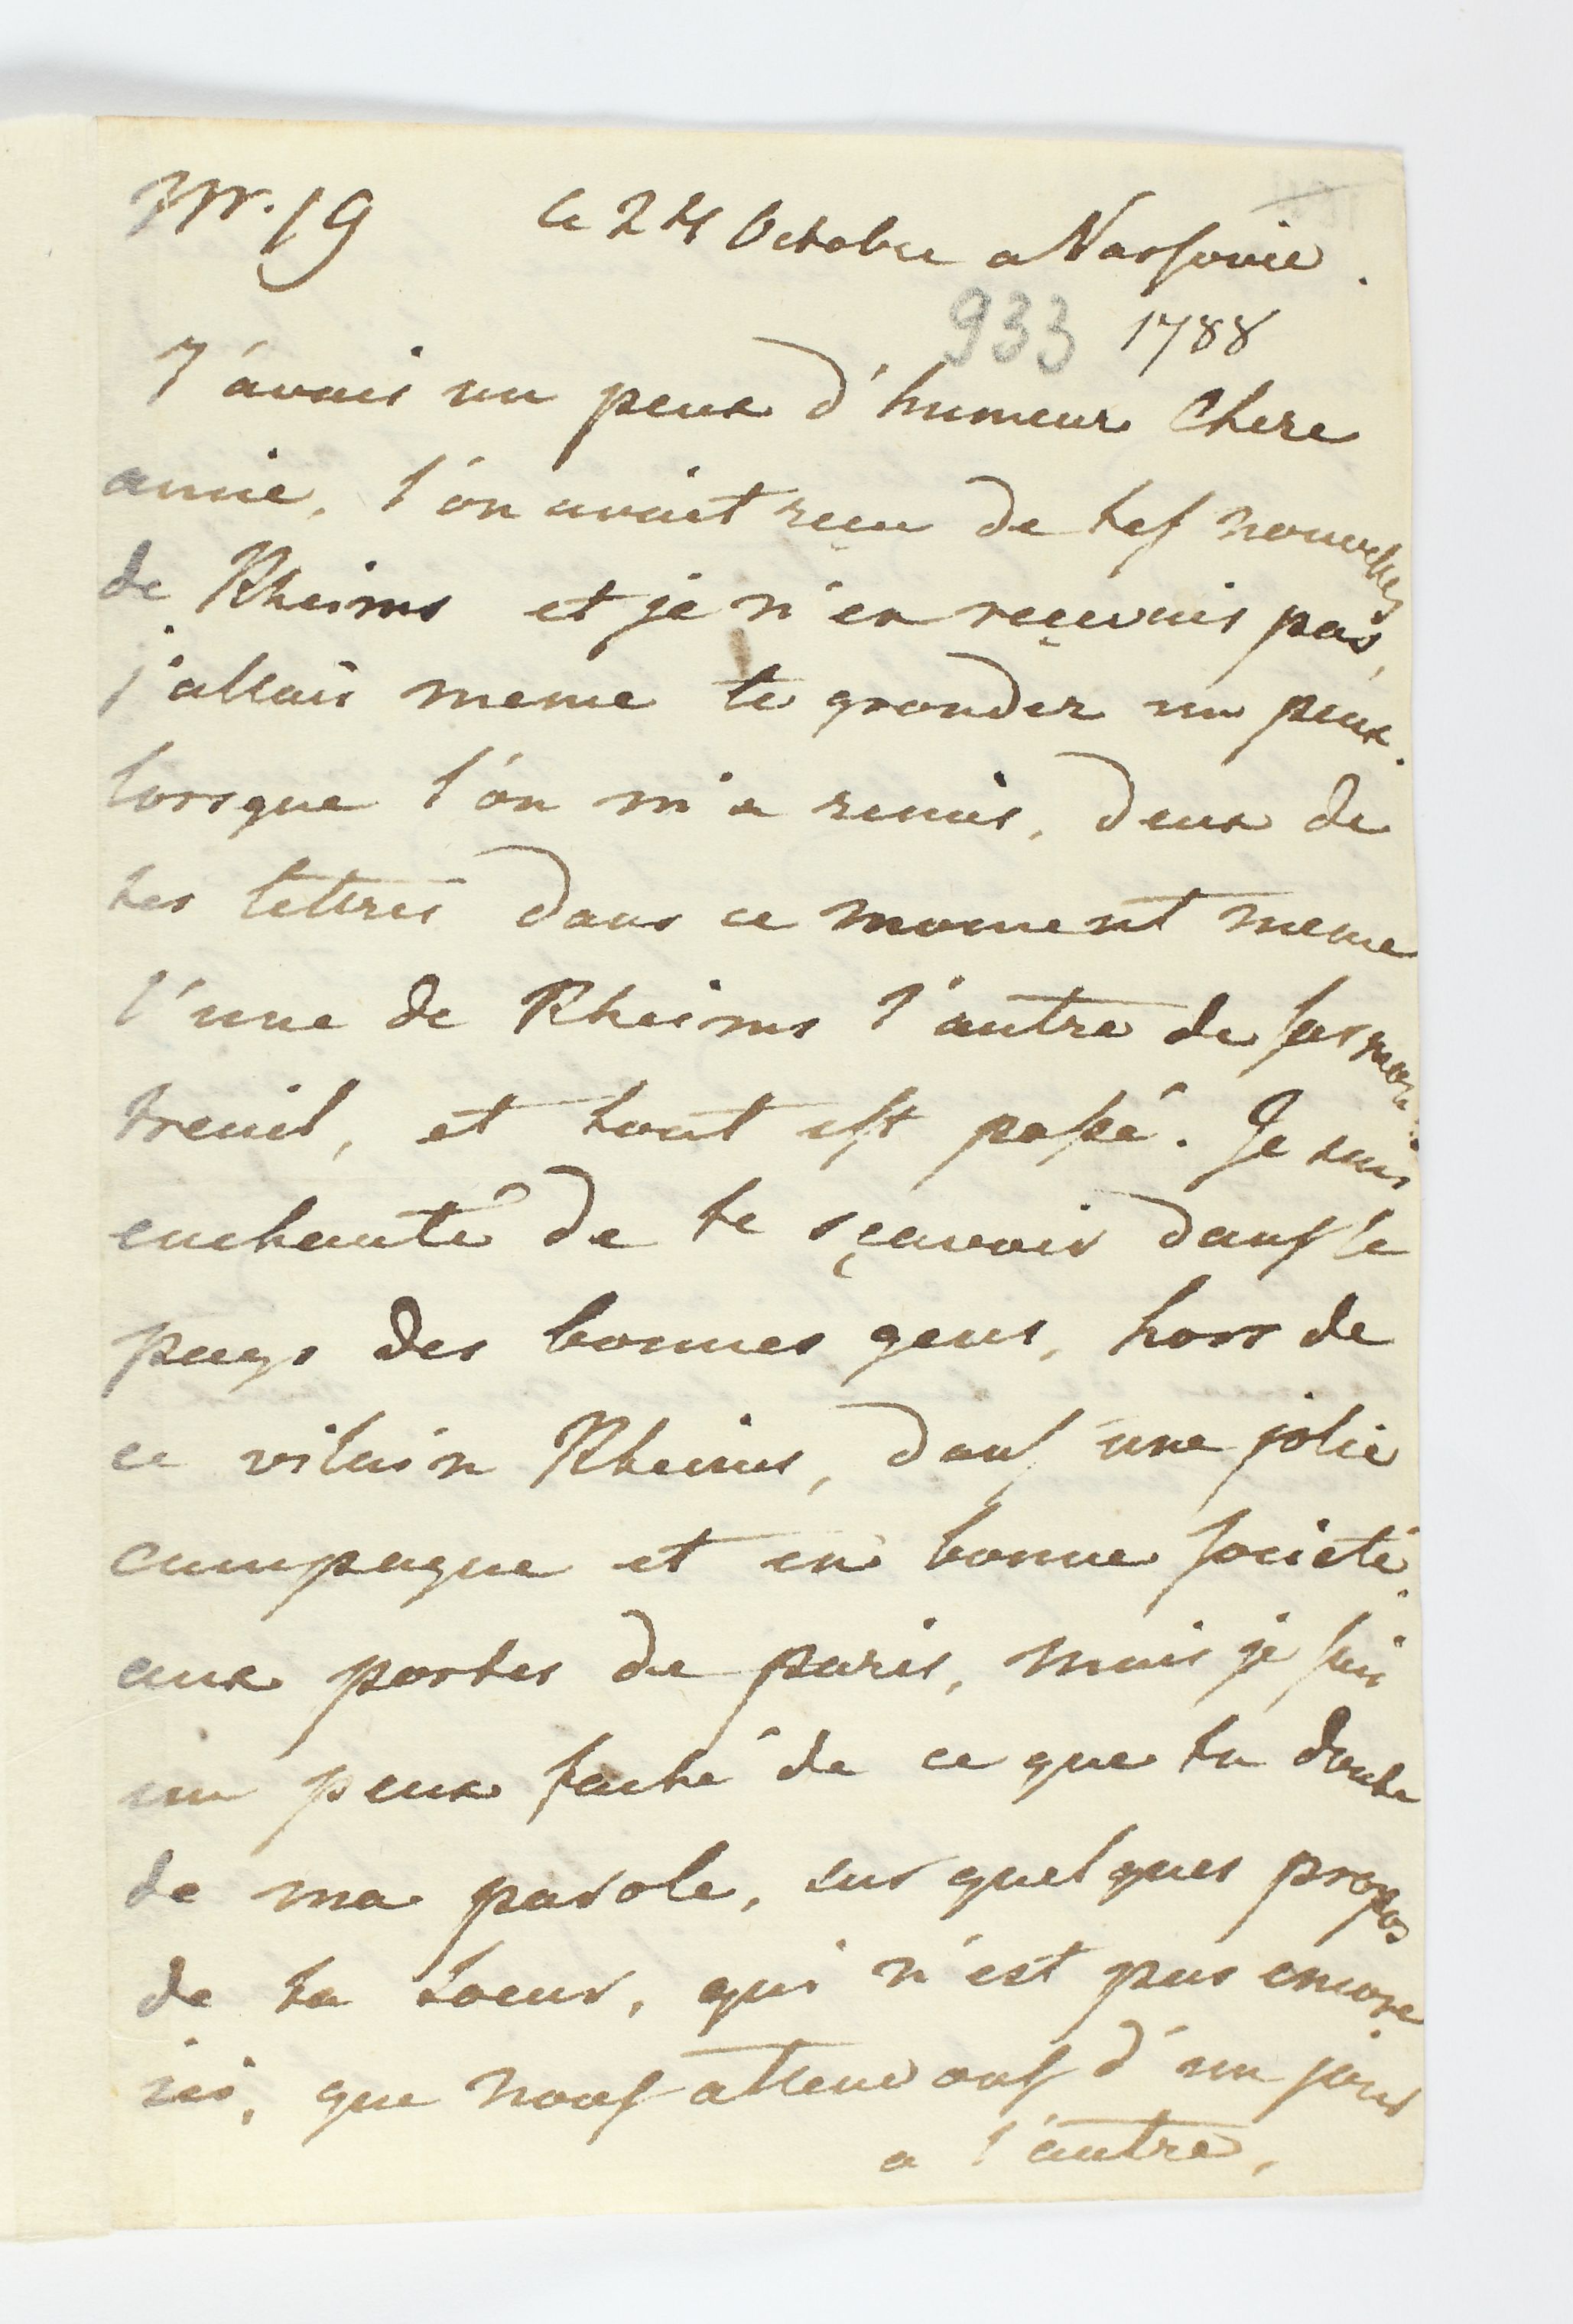 Nr. 19 le 24 Octobre a Varsovie.
933 1788
J'avais un peux d'humeur Chere
amie, l'on avait reçu de tes nouvelles
de Rheims et je n'en reçevais pas,
j'allais meme te gronder un peux.
lorsque l'on m'a remis, deux de
tes lettres dans ce moment meme
l'une de Rheims l'autre de
treuil, et tout est passé. Je suis
enchanté de te sçavoir dans le
pays des bonnes gens, hors de
ce vilain Rheims, dans une jolie
campagne et en bonne societé.
aux portes de paris, mais je suis
un peux faché de ce que tu doute
de ma parole, sur quelques propos
de ta soeur, qui n'est pas encore
ici, que nous attendons d'un jour
a l'autre,